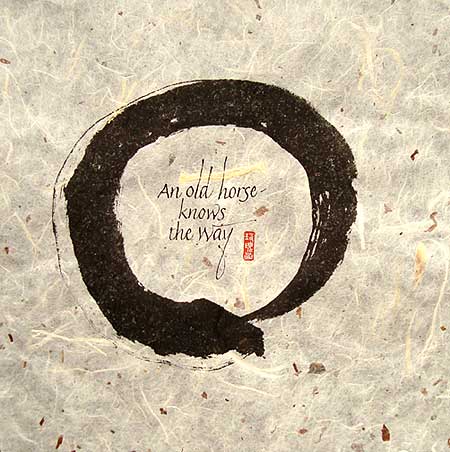 An old horse
knows
the way